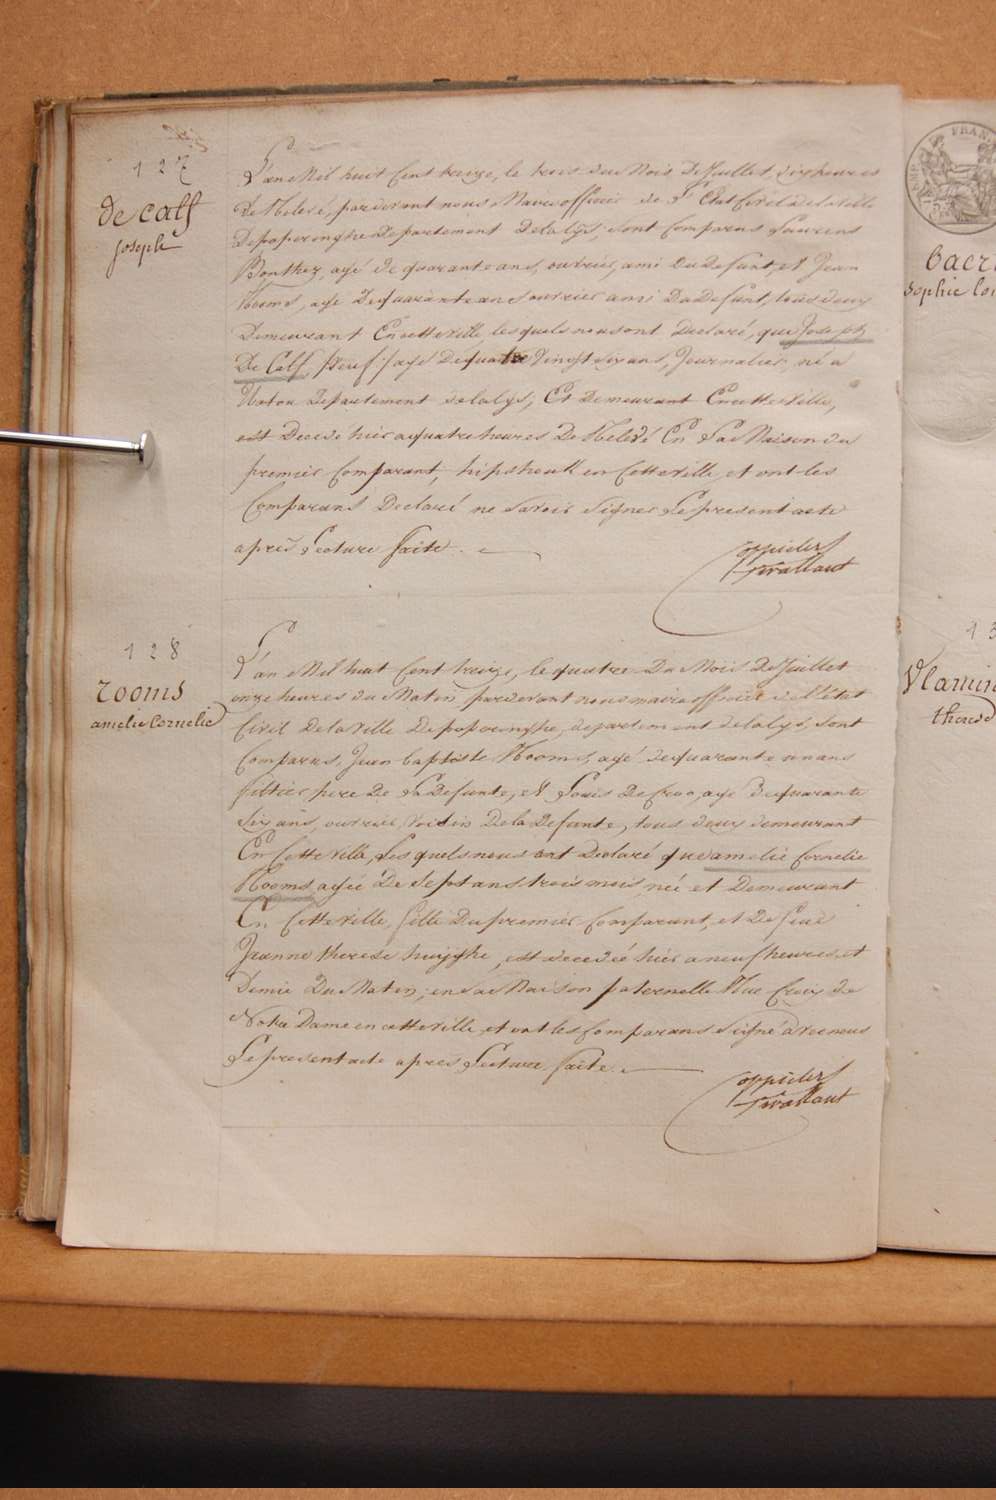 127
de calf
joseph
L'an Mil huit Cent treize, le trois du Mois De Juillet, dix heures
De Relevé, pardevant nous Maire officier de L'Etat Civil de la Ville
De poperinghe Departement De la Lys, sont Comparus Laurens
Bonthez, agé de quarante ans, ouvrier, ami Du Defunt, et Jean
Rooms, agé De quarante ans ouvrier ami Du Defunt, tous deux
Demeurant En cette Ville, lesquels nous ont Declaré, que Joseph
De Calf, Veuf, agé De quatre Vingt six ans, Journalier, né a
Watou Departement de la Lys, Et Demeurant En cette Ville,
est Decedé hier a quatre heures De Relevé En La Maison du
premier Comparant, hipshouk en Cette Ville, et ont les
Comparans Declaré ne Savoir Signer Le present acte
après Lecture faite.
Coppieters
Trivallaut
128
rooms
amelie Cornelie
L'an Mil huit Cent treize, le quatre Du Mois De Juillet
onze heures du Matin pardevant nous maire officier de l'état
Civil De la Ville De poperinghe, departement de la Lys, sont
Comparus, Jean baptiste Rooms, agé de quarante un ans
filtier, pere De La Defunte, et Louis De Croo, agé De quarante
six ans, ouvrier, Voisin De la Defunte, tous deux demeurant
En Cette Ville, Lesquels nous ont Declaré que amelie Cornelie
Rooms, agée De Sept ans trois mois, née et Demeurant
En Cette Ville, fille Du premier Comparant, et De feue
Jeanne therese huyghe, est decedée hier a neuf heures et
Demie Du Matin, en Sa Maison paternelle Rue Croix de
Notre Dame en cette Ville, et ont les Comparans Signé avec nous
Le present acte après Lecture faite.
Coppieters
Trivallaut
TIMBRE
FRAN
bacr
sophie lou
13
Vlamin
therese